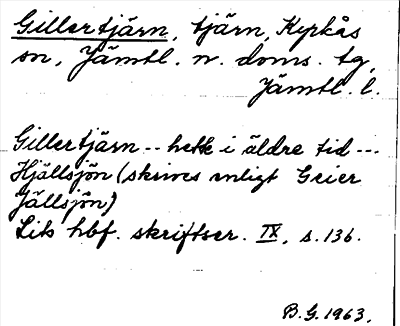 Gillertjärn, tjärn, Kyrkås
sn, Jämtl. n. doms. tg,
Jämtl. l.
Gillertjärn -- hette i äldre tid ---
Hjällsjön (skrives enligt Geier
Jällsjön)
Lits hbf. skriftser. IX, s. 136.
B.G. 1963.